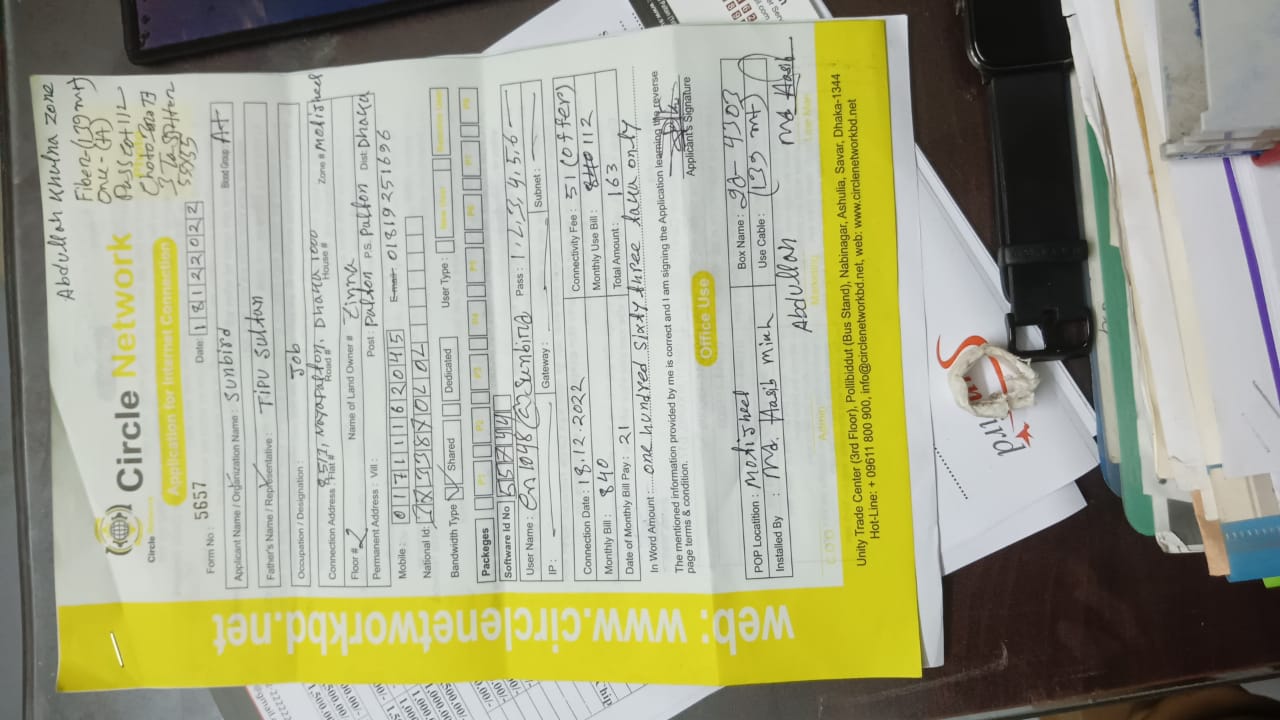 Abdullah Khulna zone
Fiber-(139 mt)
Onu-(A)
Circle Network
Circle Network
Application for Internet Connection
55555
Form No : 5657
Date: 18122022
Applicant Name / Organization Name : Sunbird
Blood Group A+
Father's Name / Representative : TIPU SULTAN
Occupation / Designation : Job
Connection Address : Flat # 85/2, Nayapalton, Dhaka 1000
Road # House # Zone # Motijheel
Floor # 2 Name of Land Owner #
Permanent Address : Vill : Post : Palton P.S. Palton Dist: Dhaka
Mobile : 01711162045 Email 01819251696
National Id :
Bandwidth Type Shared Dedicated User Type :
Packeges P1 P2 P3 P4 P5 P6 P7 P8 P9
Software Id No 55744
User Name : Cn1048@Sunbird Pass : 1,2,3,4,5,6
IP : Gateway : Subnet :
Connection Date : 18.12.2022 Connectivity Fee : 51(offer)
Monthly Bill : 840 Monthly Use Bill : 840 112
Date of Monthly Bill Pay : 21 Total Amount : 163
In Word Amount : one hundred sixty three taka only
The mentioned information provided by me is correct and I am signing the Application learning the reverse
page terms & condition.
Applicant's Signature
Office Use
POP Locatition : Motijheel Box Name : 90- 4303
Installed By : Md. Hasb Miah Use Cable : (139 mt)
Abdullah Md Hasb
Admin Marketing
Unity Trade Center (3rd Floor), Pollibiddut (Bus Stand), Nabinagar, Ashulia, Savar, Dhaka-1344
Hot-Line: + 09611 800 900, info@circlenetworkbd.net, web: www.circlenetworkbd.net
web: www.circlenetworkbd.net